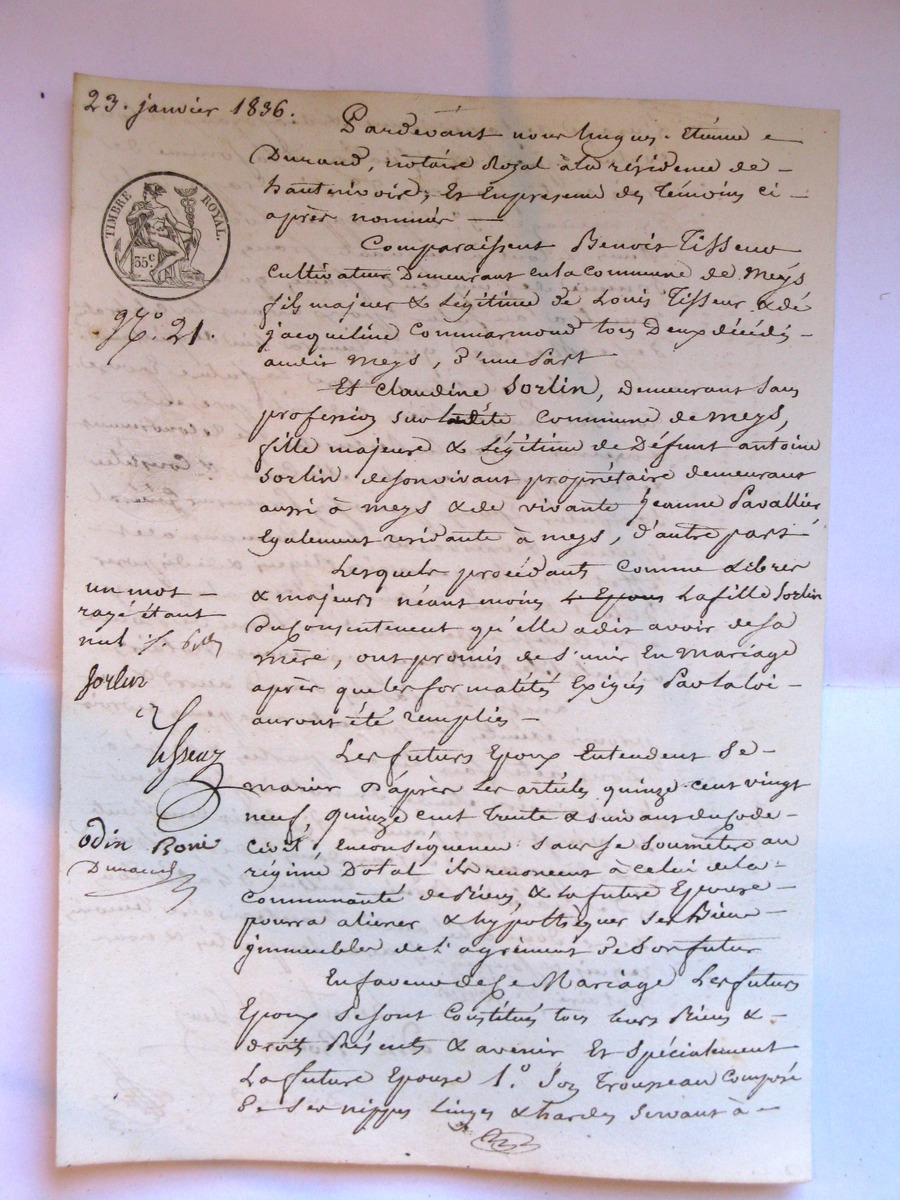 23. janvier 1836.
Pardevant nous hugues. étienne
Durand, notaire Royal à la résidence de
hauterivoire, Et En présence des témoins ci
après nommés
TIMBRE ROYAL.
35 c
Comparaissent Benoit Tisseur
Cultivateur Demeurant en la commune de Meys
fils majeur & Légitime de Louis Tisseur & de
jacqueline Commarmond tous Deux décédés
N.° 21.
audit Meys, d'une part
Et Claudine Sorlin, demeurant sans
profession sur ladite Commune de Meys,
fille majeure & Légitime de Défunt antoine
Sorlin de son vivant propriétaire demeurant
aussi à Meys & de vivante Jeanne Pavallier
Egalement residante à Meys, d'autre part
Lesquels procédants comme Libres
& majeurs néantmoins Le Epoux La fille Sorlin
Du Consentement qu'elle a dit avoir de sa
mère, ont promis de S'unir En Mariage
après que les formalités Exigés Par la loi
auront été remplies
un mot
rayé étant
nul
Sorlin
Tisseur
odin Bonie
Durand
Les futurs Epoux Entendent Se
marier D'après Les articles quinze cent vingt
neuf, quinze cent trente & suivant du Code
Civil, En conséquence sans se soumettre au
régime Dotal ils renoncent à celui de la
Communauté de Biens, & La future Epouse
pourra aliener & hypothèquer ses Biens
jmmeubles de L'agrément de Son futur
En faveur de Ce Mariage Les futurs
Epoux Se sont Constitués tous leurs Biens &
droits Présents & avenir Et Spécialement
La future Epouse 1.° Son Trousseau Composé
De Ses nippes Linges & hardes Servant à